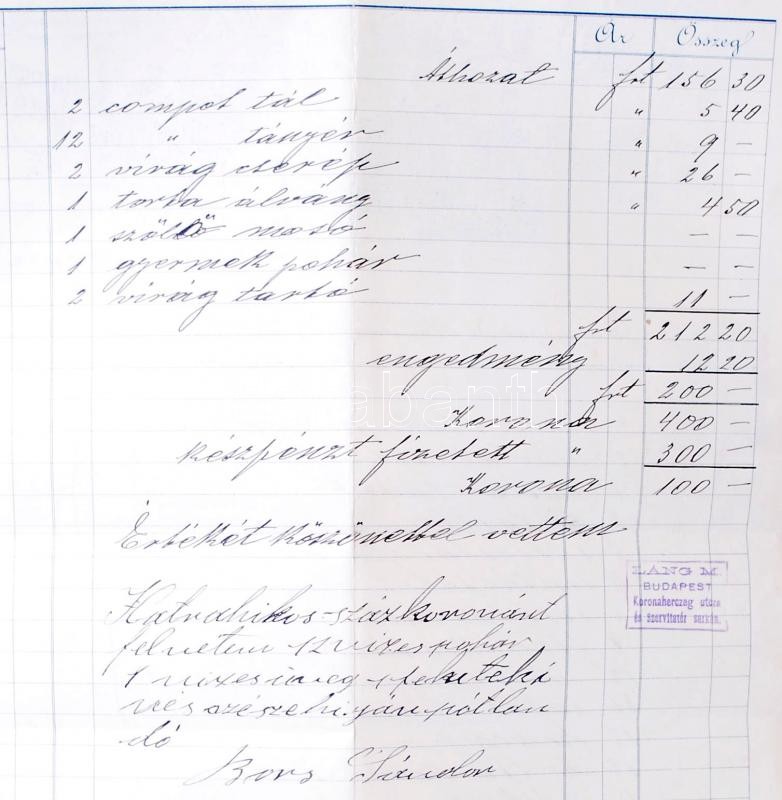 Ár Összeg
Áthozat frt 156 30
2 compot tál " 5 40
12 " tányér " 9 —
2 virág cserép " 26 —
1 torta álvány " 4 50
1 szöllő mosó — —
1 gyermek pohár — —
2 virág tartó 11 —
frt 212 20
engedmény 12 20
frt 200 —
Korona 400 —
készpénzt fizetett " 300 —
Korona 100 —
Értékét köszönettel vettem
LÁNG M.
BUDAPEST
Koronaherczeg utcza
és Szervitatér sarkán.
száz koronánt
felvetem 12 vizes pohár
1 vizes üveg
pótlan
dó
Bors Sándor
abanth